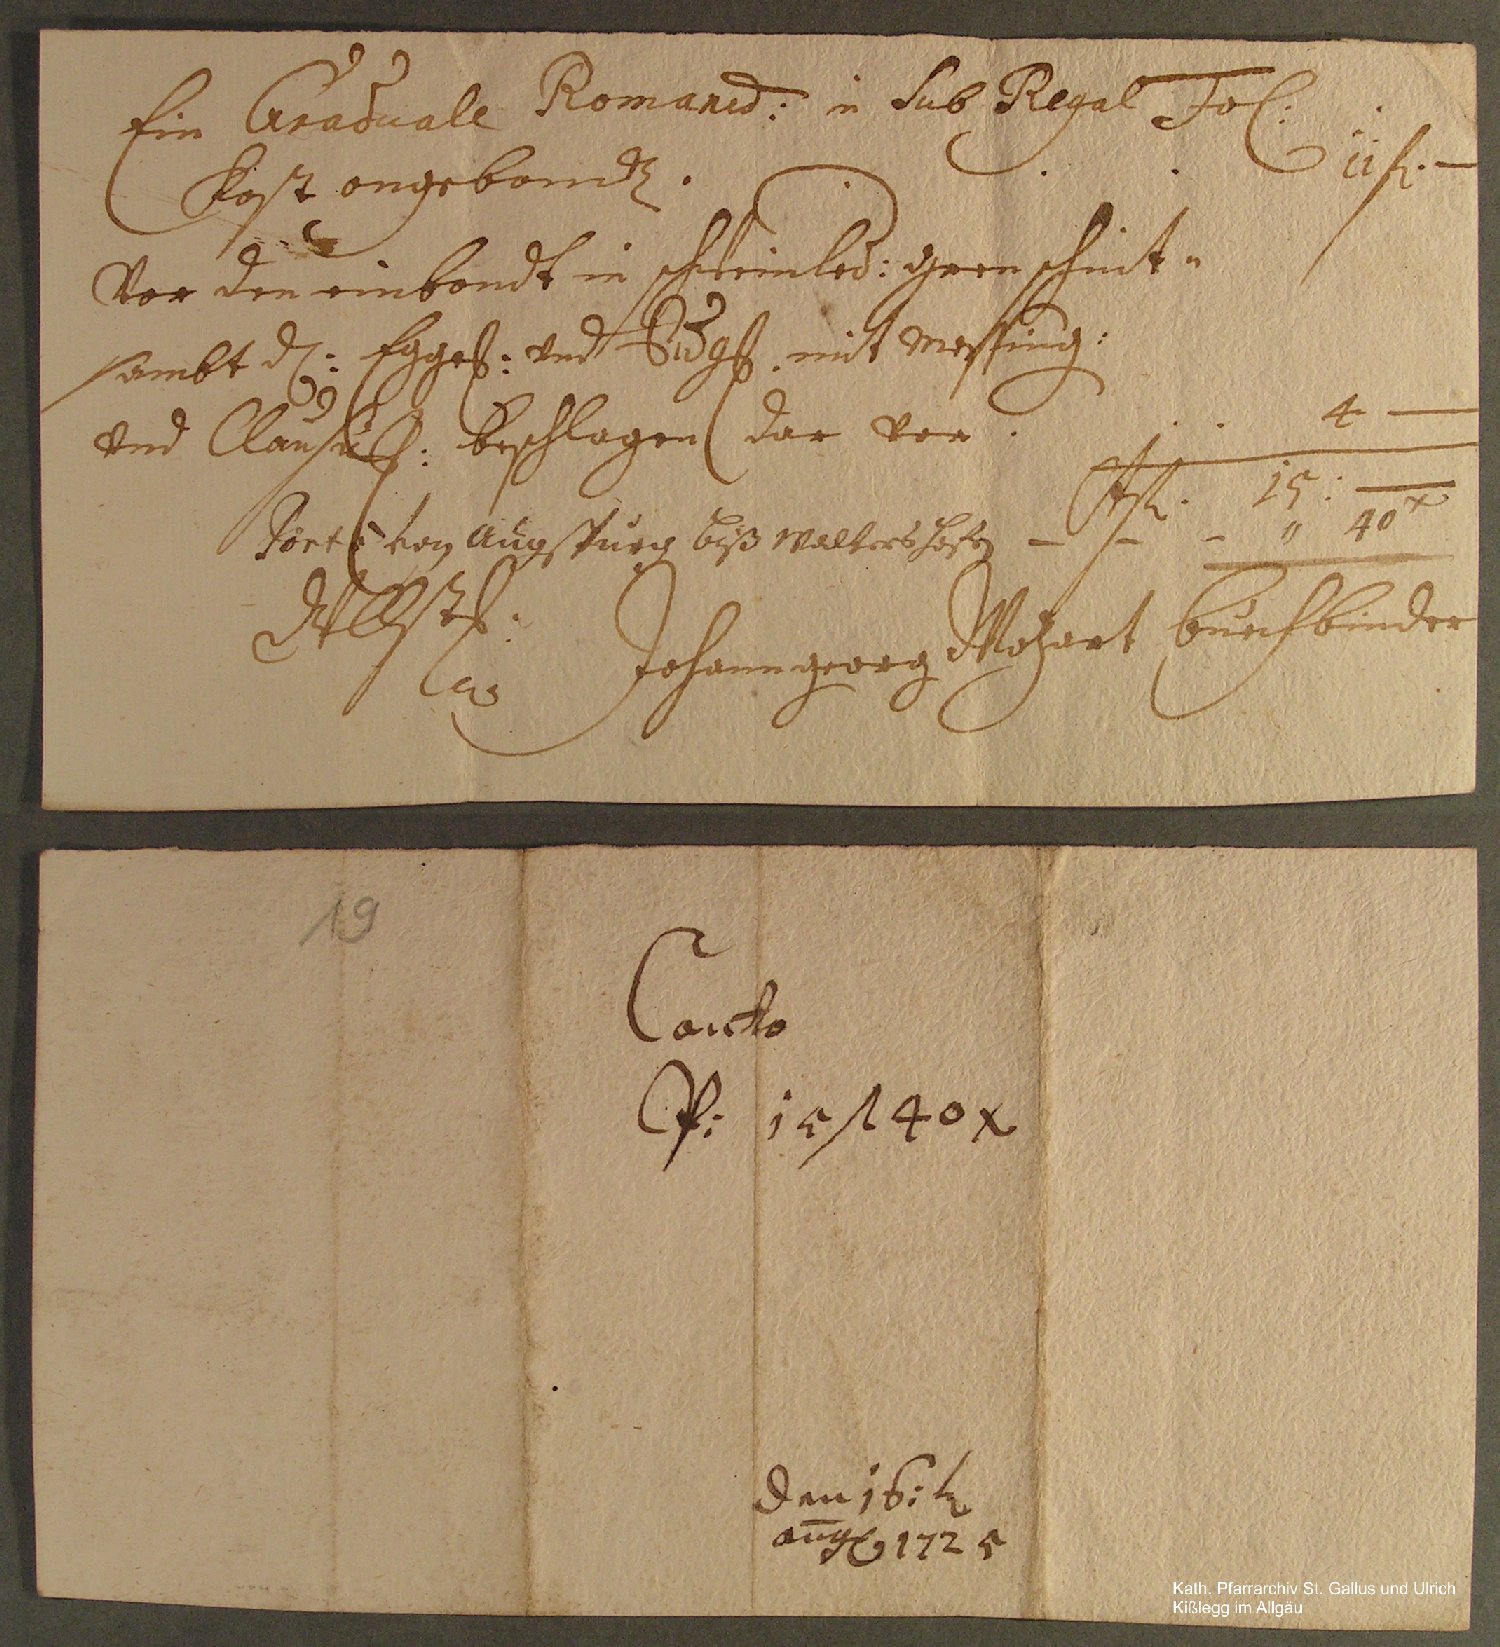 Ein Graduale Roman: in Sub Regal Fol:
kost ongebondt . . . 11 fl. —
Vor den einbondt in schweinled: green schnit
sambt d: Egges: und mit messing:
und Clausur: beschlagen dar vor . . . 4 —
fl. 15: —
Porto von Augspurg biß Waltershofen — — — " 40 x
Johann georg Mozart buechbinder
19
Conto
P: 15 fl 40 x
Den 16: t
aug 1725
Kath. Pfarrarchiv St. Gallus und Ulrich
Kißlegg im Allgäu